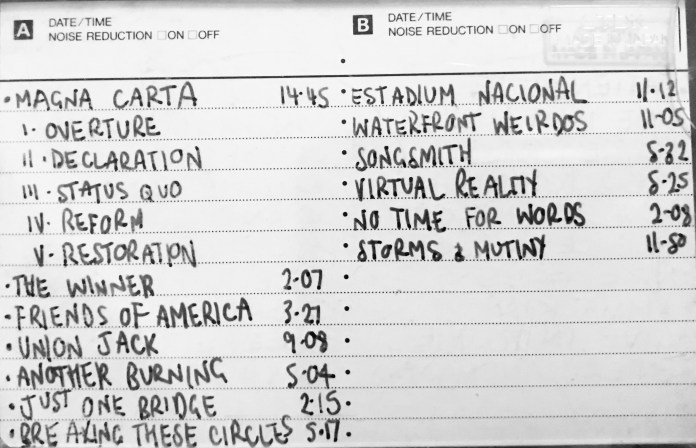 A DATE/TIME
NOISE REDUCTION □ON □OFF
•MAGNA CARTA 14·45
I· OVERTURE
II·DECLARATION
III·STATUS QUO
IV·REFORM
V·RESTORATION
•THE WINNER 2·07
•FRIENDS OF AMERICA 3·21
•UNION JACK 9·08
•ANOTHER BURNING 5·04
•JUST ONE BRIDGE 2:15
•BREAKING THESE CIRCLES 5·17
B DATE/TIME
NOISE REDUCTION □ON □OFF
•ESTADIUM NACIONAL 11·12
•WATERFRONT WEIRDOS 11-05
•SONGSMITH 5-32
•VIRTUAL REALITY 5-25
•NO TIME FOR WORDS 2-08
•STORMS & MUTINY 11-50